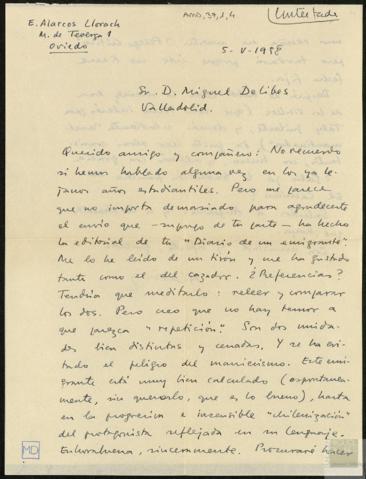 AMD,39,1,4
Contestada
E. Alarcos Llorach
M. de Teverga 1
Oviedo
5-V-1958
Sr. D. Miguel Delibes
Valladolid.
Querido amigo y compañero: No recuerdo
si hemos hablado alguna vez en los ya le-
janos años estudiantiles. Pero me parece
que no importa demasiado para agradecerte
el envío que — supongo de tu parte — ha hecho
la editorial de tu "Diario de un emigrante".
Me lo he leído de un tirón y me ha gustado
tanto como el del cazador. ¿Referencias?
Tendría que meditarlo: releer y comparar
los dos. Pero creo que no hay temor a
que parezca "repetición". Son dos unida-
des bien distintas y cerradas. Y se ha evi-
tado el peligro del manierismo. Este emi-
grante está muy bien calculado (espontánea-
mente, sin quererlo, que es lo bueno), hasta
en la progresiva e insensible "chilenización"
del protagonista reflejada en su lenguaje.
Enhorabuena, sinceramente. Procuraré hacer
MD